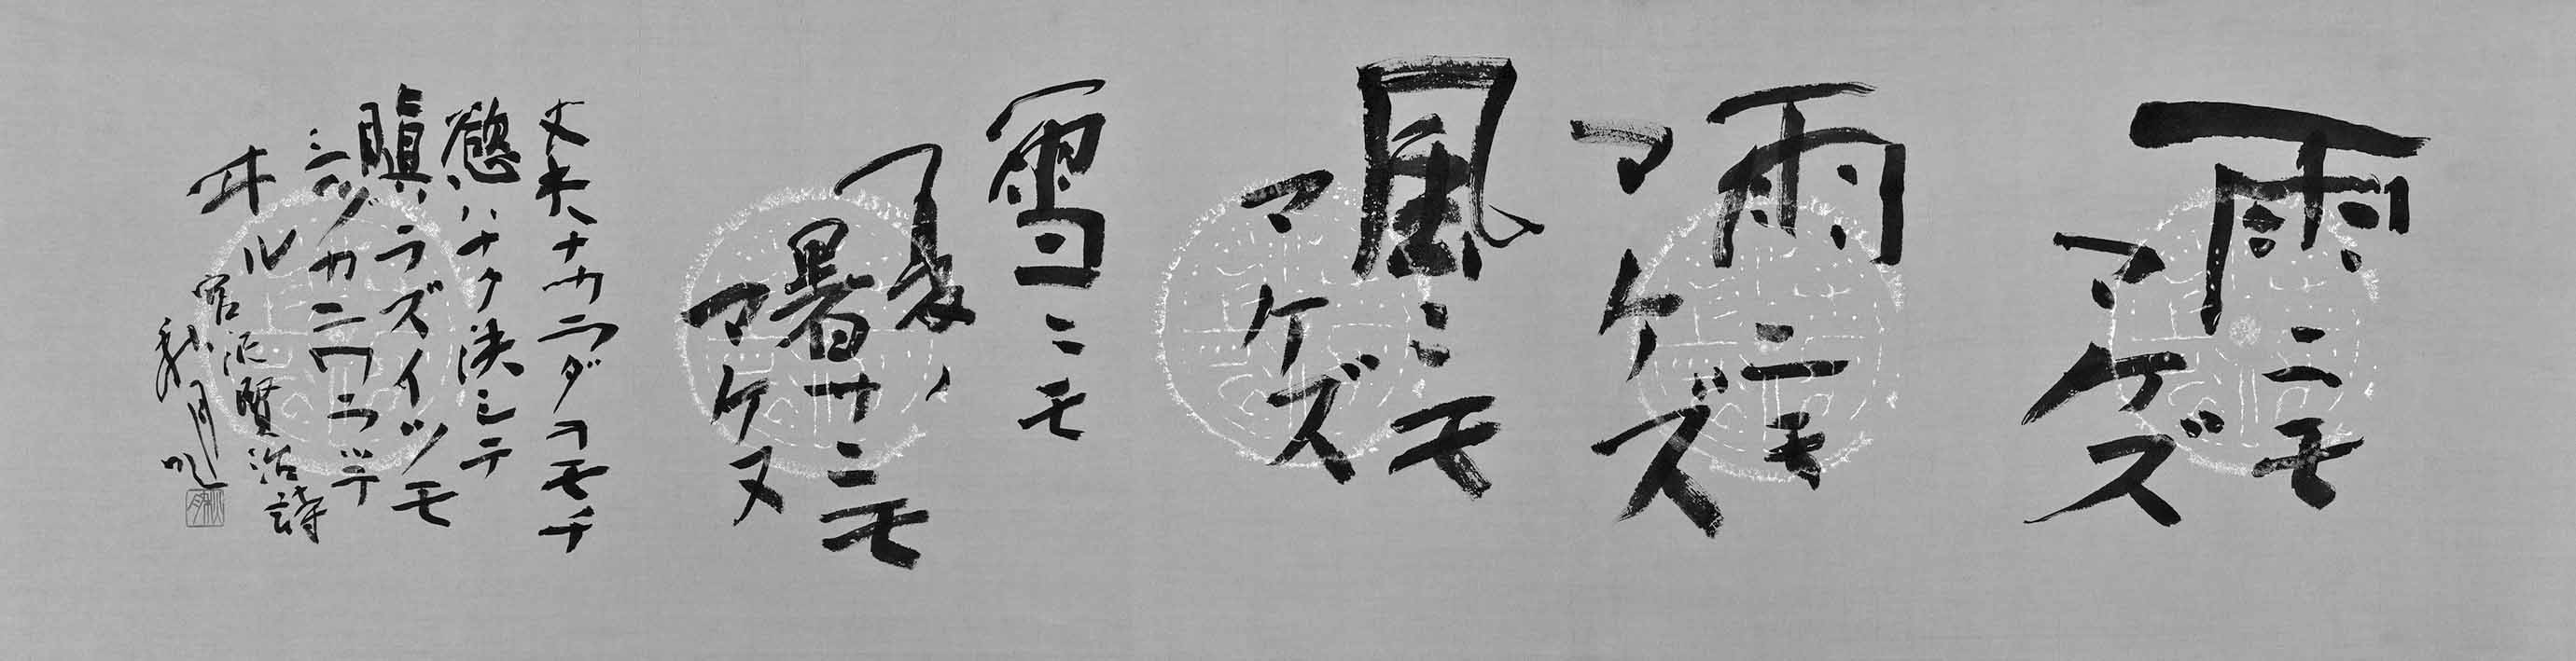 雨ニモ
マケズ
雨ニモ
マケズ
風ニモ
マケズ
雪ニモ
夏ノ
暑サニモ
マケヌ
丈夫ナカラダヲモチ
慾ハナク決シテ
瞋ラズイツモ
シヅカニワラッテ
ヰル
宮沢賢治詩
秋月